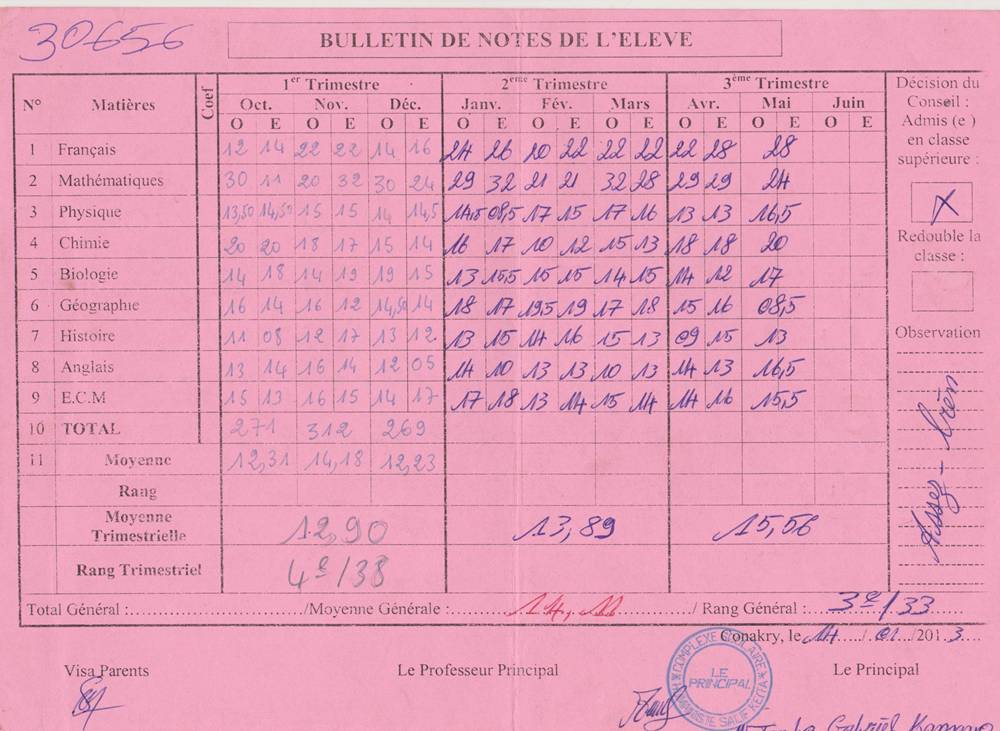 30656
BULLETIN DE NOTES DE L'ELEVE
N° Matières Coef 1er Trimestre 2ème Trimestre 3ème Trimestre
Oct. Nov. Déc. Janv. Fév. Mars Avr. Mai Juin
O E O E O E O E O E O E O E O E O E
1 Français 12 14 22 22 14 16 24 26 20 22 22 22 22 28 28
2 Mathématiques 30 11 20 32 30 24 29 32 21 21 32 28 29 29 24
3 Physique 13,50 14,50 15 15 14 14,5 14,5 08,5 17 15 17 16 13 13 16,5
4 Chimie 20 20 18 17 15 14 16 17 10 12 15 13 18 18 20
5 Biologie 14 18 14 19 19 15 13 15,5 15 15 14 15 14 12 17
6 Géographie 16 14 16 12 14,50 14 18 17 19,5 19 17 18 15 16 08,5
7 Histoire 11 08 12 17 13 12 13 15 14 16 15 13 09 15 13
8 Anglais 13 14 16 14 12 05 14 10 13 13 10 13 14 13 16,5
9 E.C.M 15 13 16 15 14 17 17 18 13 14 15 14 14 16 15,5
10 TOTAL 271 312 269
11 Moyenne 12,31 14,18 12,23
Rang
Moyenne Trimestrielle 12,90 13,89 15,56
Rang Trimestriel 4e/38
Décision du
Conseil :
Admis (e )
en classe
supérieure :
X
Redouble la
classe :
Observation
Assez-bien
Total Général :............/Moyenne Générale :......14,11......./ Rang Général :....3e/33....
Conakry, le 14..../.01../2013...
Visa Parents Le Professeur Principal Le Principal
COMPLEXE SCOLAIRE
LE
PRINCIPAL
SALIF KEITA
Gabriel